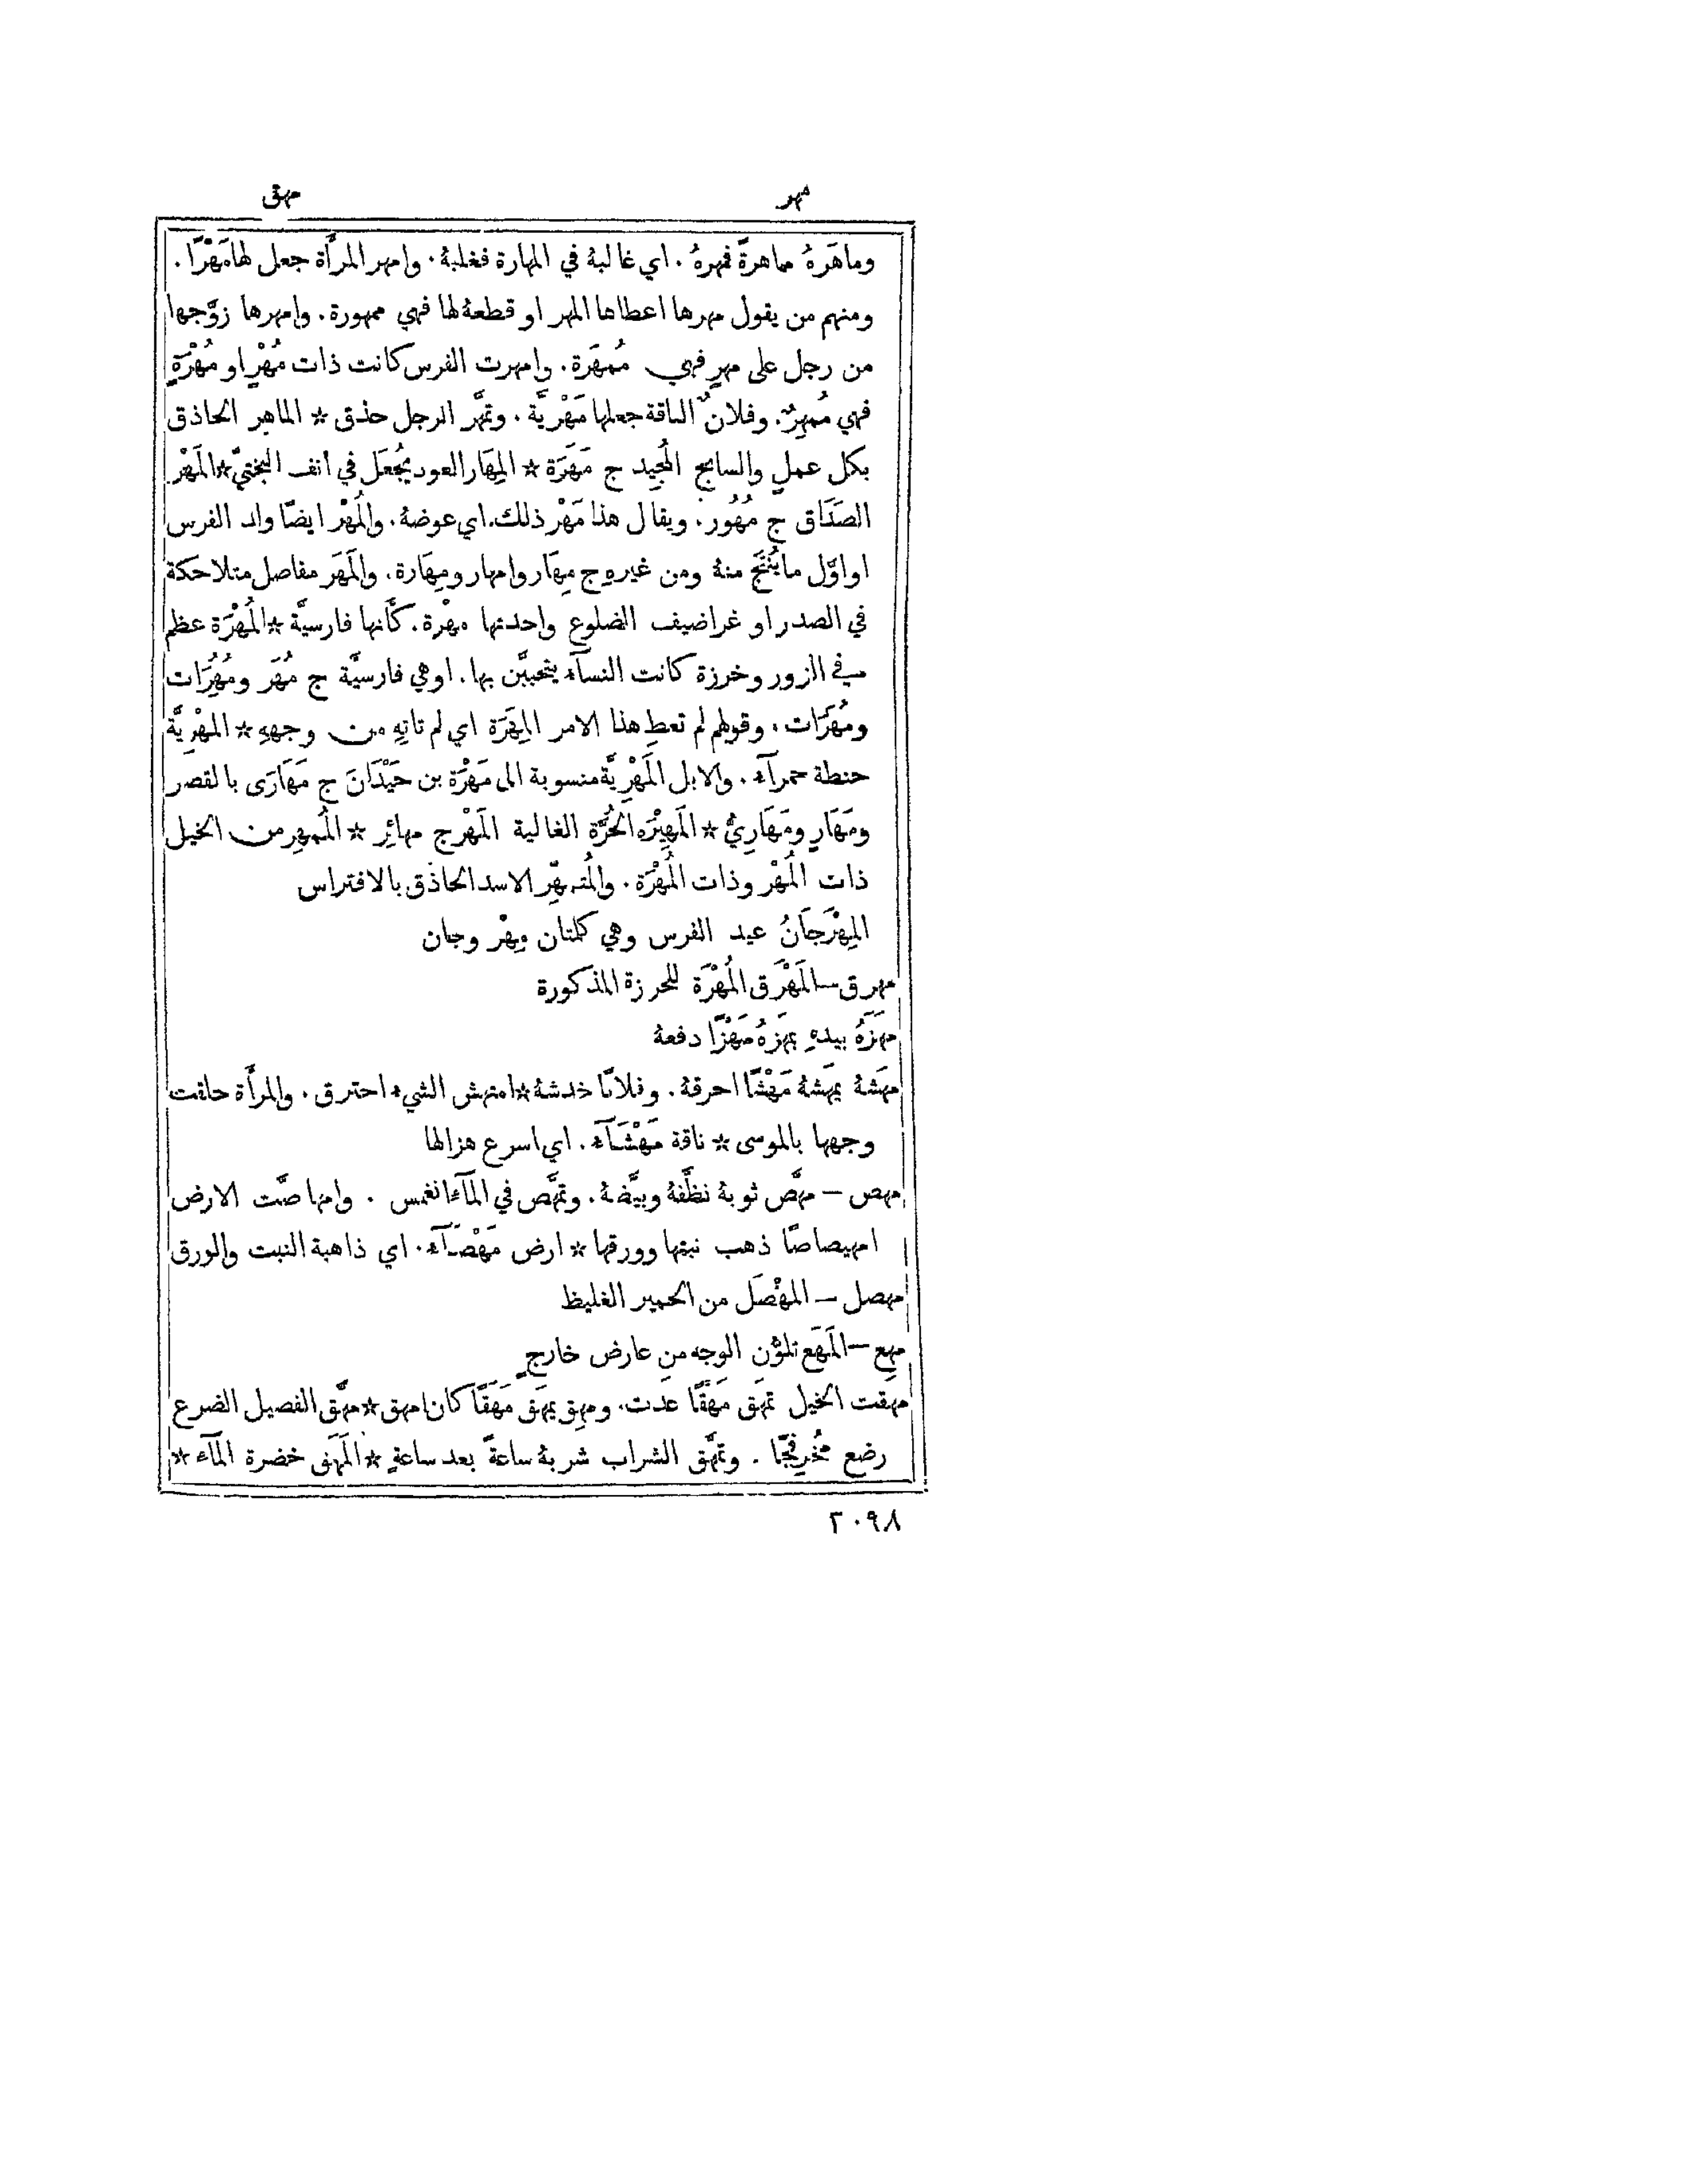 مهر
مهق
وماهَرهُ مماهرةً فمهرهُ. اي غالبهُ في المهارة فغلبهُ. وامهر المرأَة جعل لها مَهْرًا.
ومنهم من يقول مهرها اعطاها المهر او قطعهُ لها فهي ممهورة. وامهرها زوَّجها
من رجل على مهرٍ فهي مُمهَرة. وامهرت الفرس كانت ذات مُهْرٍ او مُهْرَةٍ
فهي مُمهِرٌ. وفلانٌ الناقة جعلها مَهْريَّة. وتمهَّر الرجل حذق * الماهِر الحاذق
بكل عملٍ والسابح المُجِيد ج مَهَرَة * المِهَار العود يُجْعَل في انف البُخْتيّ * المَهْر
الصَدَاق ج مُهُور. ويقال هذا مَهْر ذلك. اي عوضهُ. والمُهْر ايضًا ولد الفرس
او اوَّل ما يُنتَج منهُ ومن غيرهِ ج مِهَار وامهار ومِهَارة. والمَهَر مفاصل متلاحكة
في الصدر او غراضيف الضلوع واحدتها مهْرة. كأَنها فارسيَّة * المُهْرَة عظم
في الزور وخرزة كانت النسآء يتحببَّن بها. او هي فارسيَّة ج مُهَر ومُهُرَات
ومُهَرَات. وقولهم لم تعطِ هذا الامر المِهَرَة اي لم تاتهِ من وجههِ * المَهْرِيَّة
حنطة حمرآء. والابل المَهْرِيَّة منسوبة الى مَهْرَة بن حَيْدَانَ ج مَهَارَى بالقصر
ومَهَارٍ ومَهَارِيُّ * المَهِيْرَة الحُرَّة الغالية المَهْر ج مهائِر * المُمهِر من الخيل
ذات المُهْر وذات المُهْرَة. والمُتَمهِّر الاسد الحاذق بالافتراس
المِهْرَجَانُ عيد الفرس وهي كلمتان مِهْر وجان
مهرق — المَهْرَق المُهْرَة للحرزة المذكورة
مهَزَهُ بيدهِ يمهَزهُ مَهْزًا دفعهُ
مهَشهُ يمهَشهُ مَهْشًا احرقهُ. وفلانًا خدشهُ * امتهش الشيء احترق. والمرأَة حلقت
وجهها بالموسى * ناقة مَهْشَآء. اي اسرع هزالها
مهص — مهَّص ثوبهُ نظَّفهُ وبيَّضهُ. وتمهَّص في المآء انغمس. وامهاصَّت الارض
امهيصاصًا ذهب نبتها وورقها * ارض مَهْصَآء. اي ذاهبة النبت والورق
مهصل — المهْصَل من الحمير الغليظ
مهع — المَهَع تلوُّن الوجه من عارضٍ خارجٍ
مهقت الخيل تمهَق مَهْقًا عدت. ومهِق يمهَق مَهَقًا كان امهق * مهَّق الفصيل الضرع
رضع مُخْرِفجًا. وتمهَّق الشراب شربهُ ساعةً بعد ساعةٍ * المَهَق خضرة المآء *
٢٠٩٨